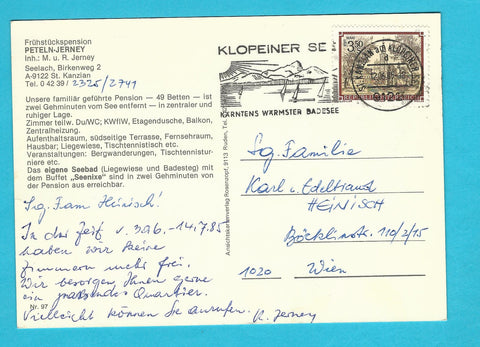 Frühstückspension
PETELN-JERNEY
Inh.: M. u. R. Jerney
Seelach, Birkenweg 2
A-9122 St. Kanzian
Tel. 0 42 39 / 2325/2741
Unsere familiär geführte Pension — 49 Betten — ist
zwei Gehminuten vom See entfernt — in zentraler und
ruhiger Lage.
Zimmer teilw. Du/WC; KWfIW, Etagendusche, Balkon,
Zentralheizung.
Aufenthaltsraum, südseitige Terrasse, Fernsehraum,
Hausbar; Liegewiese, Tischtennistisch etc.
Veranstaltungen: Bergwanderungen, Tischtennistur-
niere etc.
Das eigene Seebad (Liegewiese und Badesteg) mit
dem Buffet „Seenixe“ sind in zwei Gehminuten von
der Pension aus erreichbar.
Sg. Fam Heinisch!
In der Zeit v. 30.6.-14.7.85
haben wir keine
Zimmern mehr frei.
Wir besorgen Ihnen gerne
ein passendes Quartier.
Vielleicht können Sie anrufen.
R. Jerney
Nr. 97
Ansichtskartenverlag Rosenzopf, 9113 Ruden, Tel.
KLOPEINER SE
KÄRNTENS WÄRMSTER BADESEE
ST. KANZIAN AM KLOPEINER
9122
3.50
Sg. Familie
Karl u. Edeltraud
HEINISCH
Böcklinstr. 110/2/15
1020 Wien